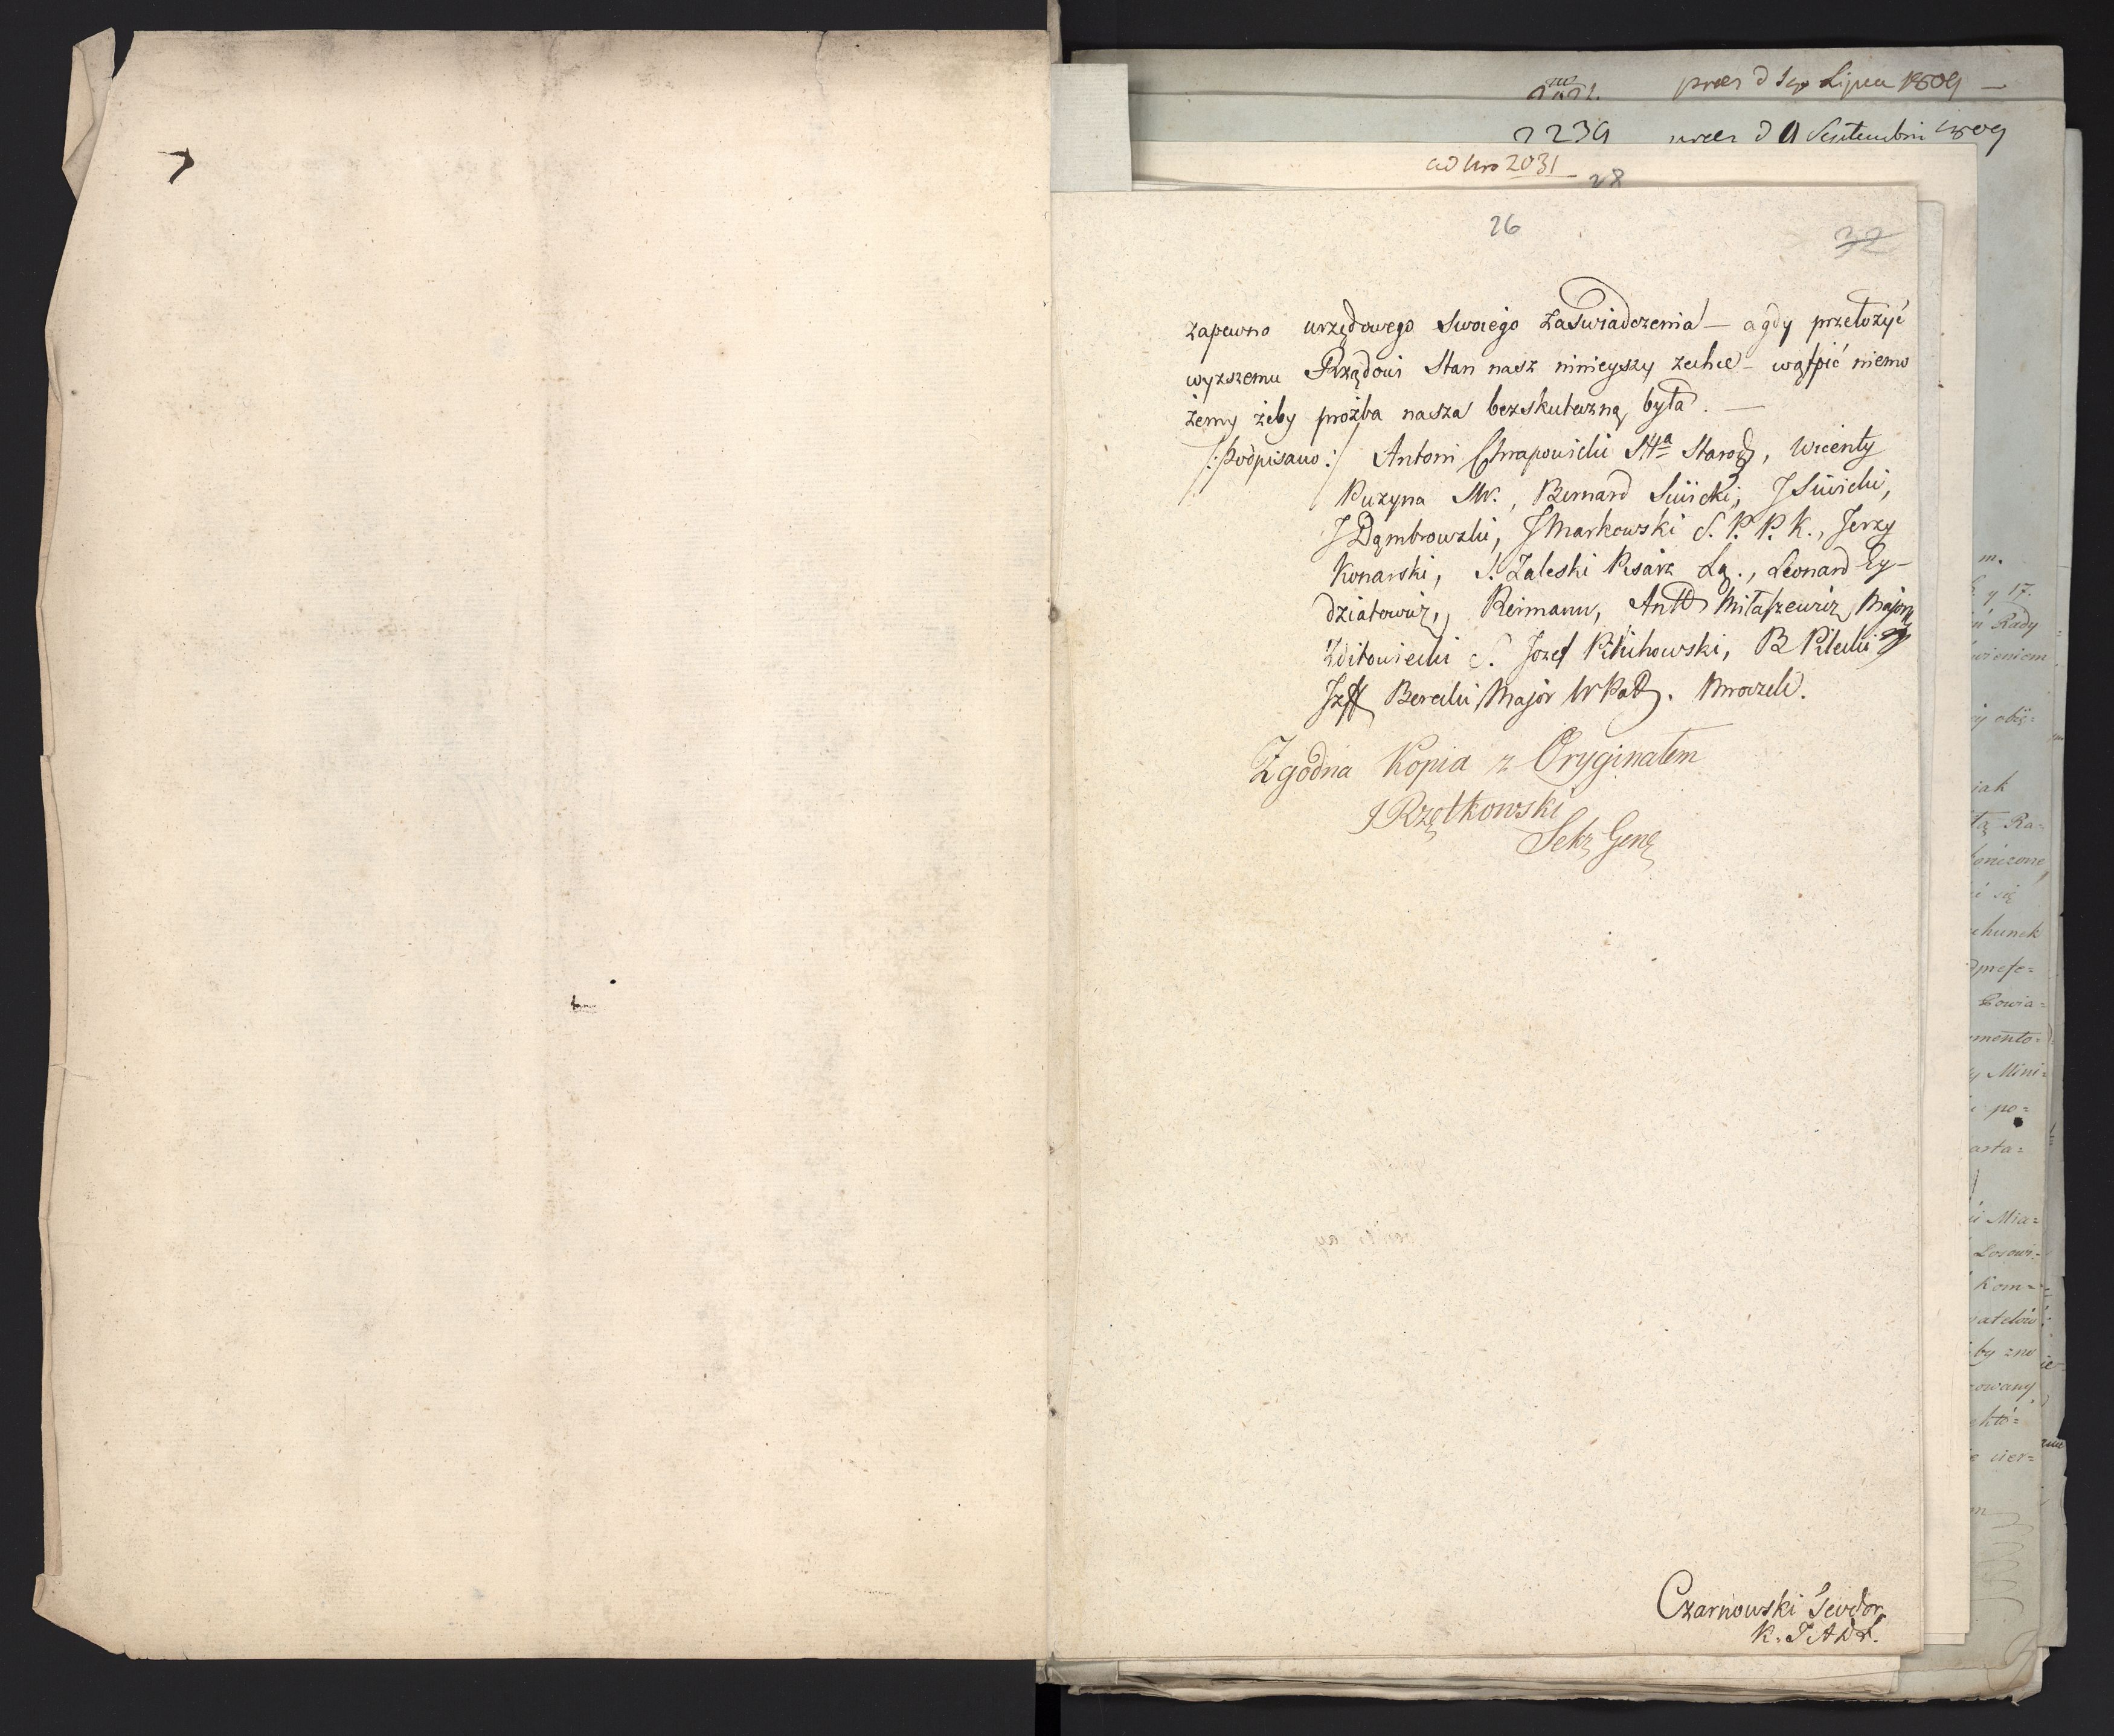 praes d Lipca 1809 —
2239 praes d 9 Septembri 1809
ad Nro 2031
28
26
32
zapewno urzędowego swoiego zaświadczenia — a gdy przełożyć
wyższemu Rządowi Stan nasz ninieyszy zechce — wątpić niemo
żemy żeby proźba nasza bezskuteczną była. —
/:Podpisano:/ Antoni Chrapowicki Starod, Wicenty
Puzyna Mr., Bernard Siwicki, J Siwicki,
J Dąmbrowski, J Markowski S. P. P. K., Jerzy
Konarski, S. Zaleski Pisarz Łą., Leonard Ży-
działowicz, Reimann, Antt Miłaszewicz Major
Zditowiecki S. Jozef Pstruchowski, B Pilecki
Jzff Berecki Major W Pol. Mroczek.
Zgodna Kopia z Oryginałem
J Rzętkowski
Sekr Gene
Czarnowski Teodor
K. T A D.
m.
y 17.
Rady
wieniem
iak
tą Ra-
się
chunek
Powia=
mento=
Mini=
po=
asta=
Mia=
Kom=
by zno
owany
któ=